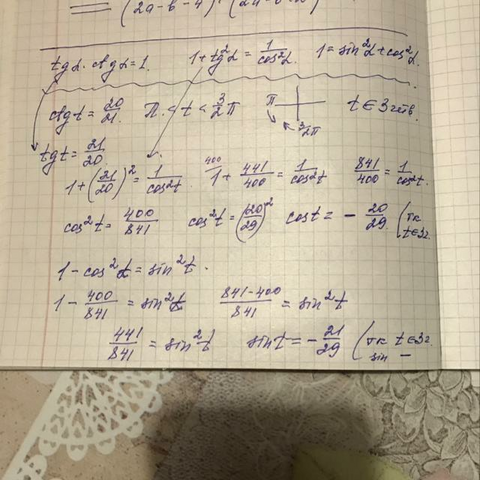 (2a-b-4)·(2a-b+2)
tgα·ctgα=1. 1+tg²α=1/cos²α. 1=sin²α+cos²α.
ctgt=20/21 π<t<3/2π π 3/2π t∈3четв.
tgt=21/20.
1+(21/20)²=1/cos²t 400/1+441/400=1/cos²t 841/400=1/cos²t.
cos²t=400/841 cos²t=(20/29)² cost=-20/29. (тк t∈3ч.
1-cos²t=sin²t.
1-400/841=sin²t 841-400/841=sin²t
441/841=sin²t sint=-21/29 (тк t∈3ч sin —